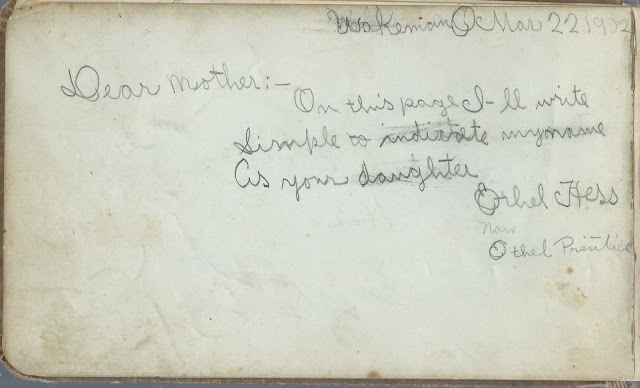 Wakeman O Mar 22 1902
Dear Mother:-
On this page I-ll write
Simple to indicate my name
As your daughter
Othel Hess
Now
Othel Prentice